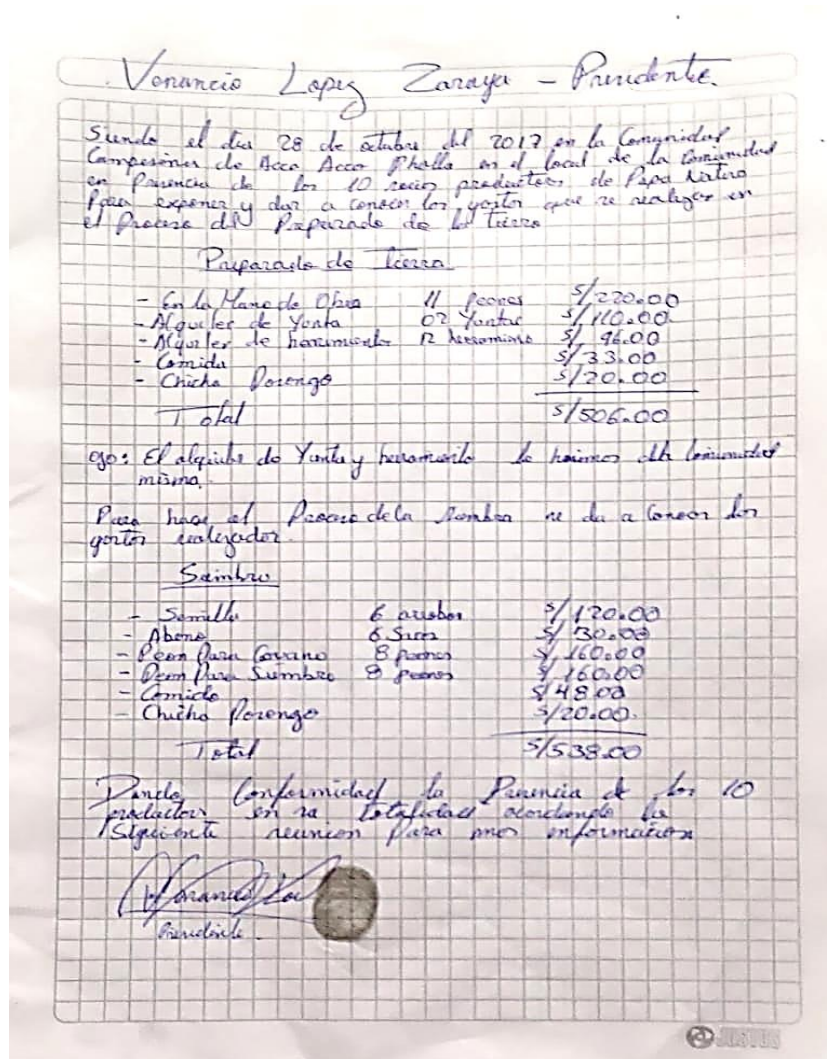 Venancio Lopez Zaraya - Presidente.
Siendo el dia 28 de octubre del 2017 en la Comunidad
Campesina de Acca Acca Phalla en el local de la Comunidad
en Presencia de los 10 socios productores de Papa Nativa
Para exponer y dar a conocer los gastos que se realizan en
el Proceso del Preparado de la tierra
Preparado de tierra
- En la Mano de Obra 11 Peones S/220.00
- Alquiler de Yunta 02 Yuntas S/110.00.
- Alquiler de herramienta 12 S/ 96.00
- Comida S/33.00
- Chicha Porongo S/20.00
Total S/506.00
ojo: El alquiler de Yunta y herramienta lo Comunidad
misma.
Para hace el Proceso de la siembra se da a Conocer los
gastos realizados.
Siembra
- Semilla 6 arrobas S/120.00
- Abono 6 S/ 30.00
- Peon Para 8 peones S/160.00
- Peon Para Siembra 8 peones S/160.00
- Comida S/48.00
- Chicha Porongo S/20.00.
Total S/538.00
Dando Conformidad la Presencia de los 10
productores en su totalidad acordando la
Siguiente reunion Para mas informacion
Presidente.
JUSTUS